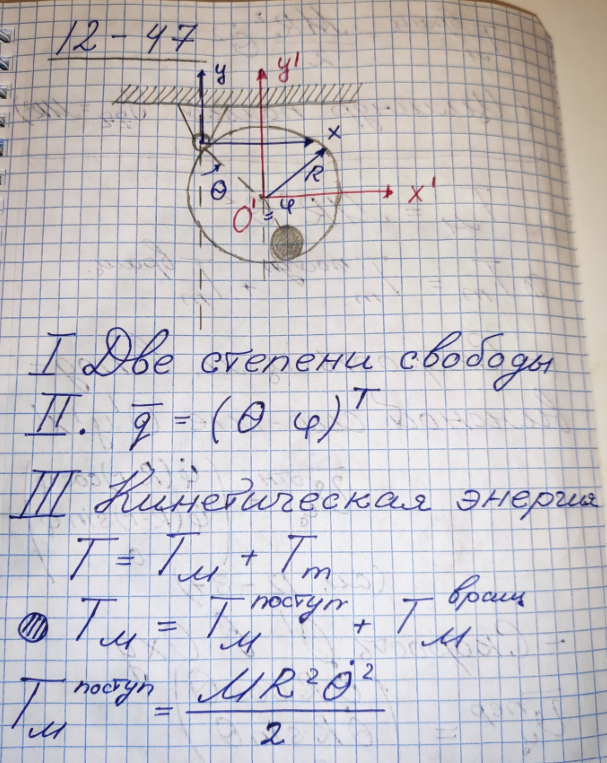 12-47
y
y'
x
R
θ
O'
φ
x'
I Две степени свободы
II. q̅ = (θ φ)ᵀ
III Кинетическая энергия
T = T_M + T_m
T_M = T_M^поступ + T_M^вращ
T_M^поступ = MR²θ̇²/2